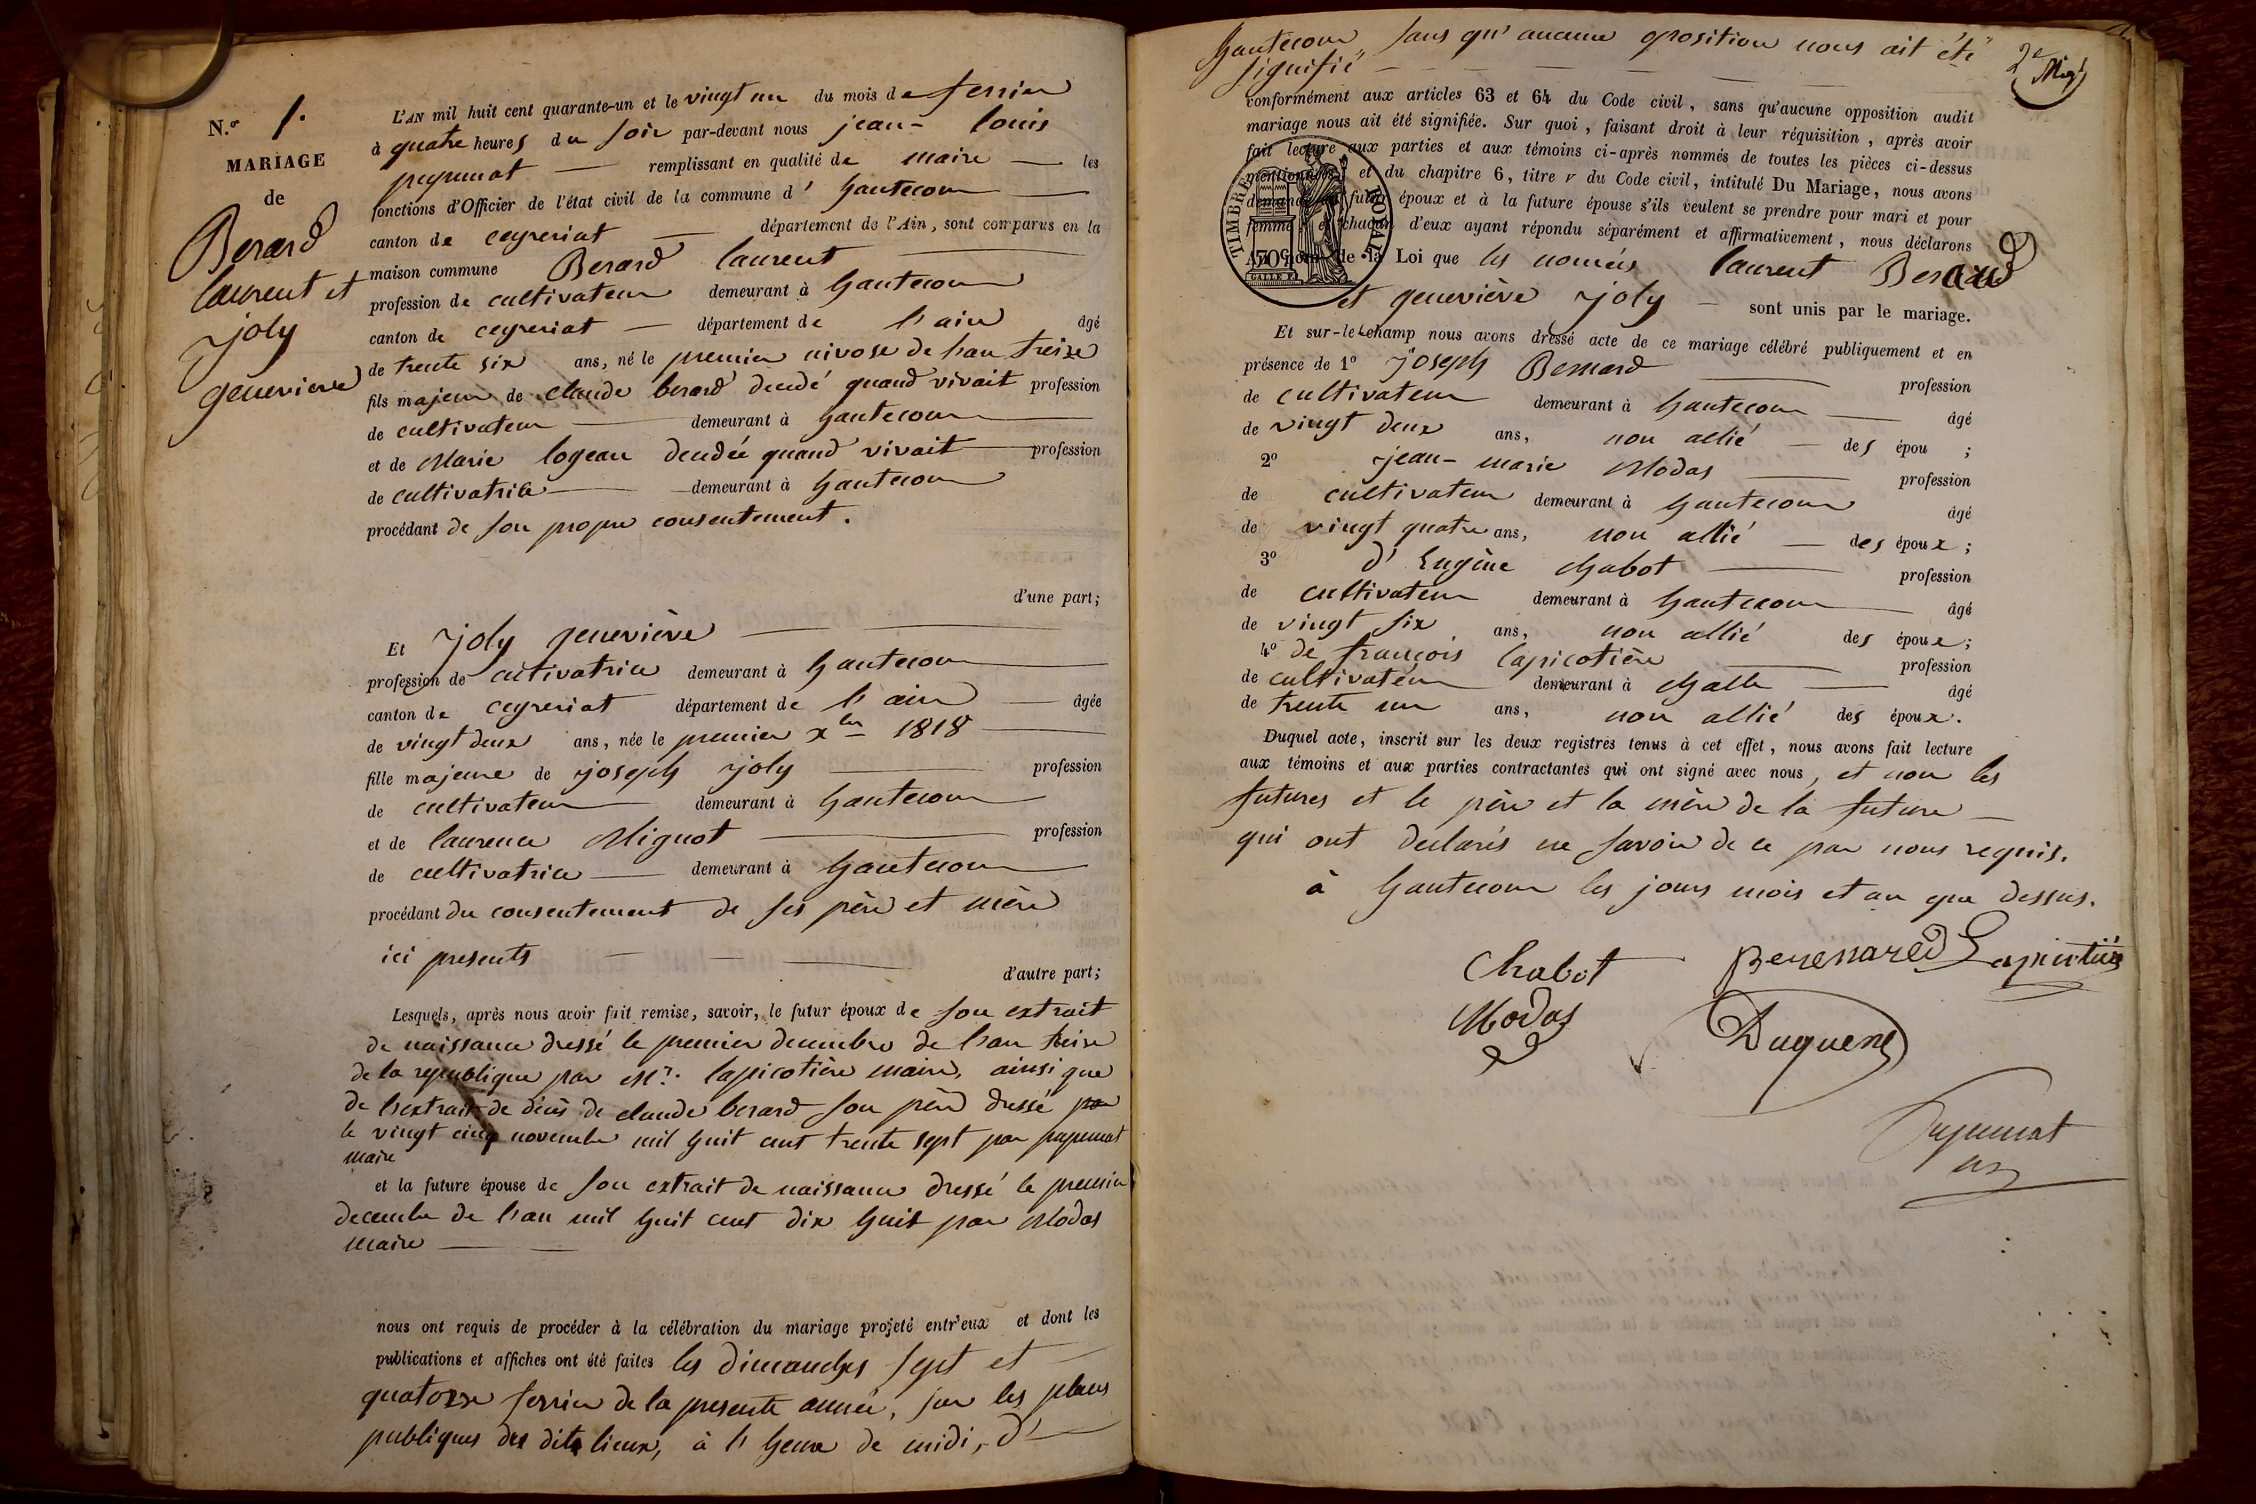 N.º 1.
MARIAGE
de
Berard
laurent et
joly
genevieve
L'AN mil huit cent quarante-un et le vingt un du mois de fevrier
à quatre heures du soir par-devant nous jean-louis
puyumat — remplissant en qualité de maire — les
fonctions d'Officier de l'état civil de la commune d' hautecour —
canton de ceyzeriat — département de l'Ain, sont comparus en la
maison commune Berard laurent —
profession de cultivateur demeurant à hautecour
canton de ceyzeriat — département de l'ain âgé
de trente six ans, né le premier nivose de l'an treize
fils majeur de claude berard decedé quand vivait profession
de cultivateur — demeurant à hautecour —
et de Marie logeau decedée quand vivait profession
de cultivatrice — demeurant à hautecour
procédant de son propre consentement.
d'une part;
Et joly geneviève —
profession de cultivatrice demeurant à hautecour —
canton de ceyzeriat département de l'ain — âgée
de vingt deux ans, née le premier xbre 1818 —
fille majeure de joseph joly — profession
de cultivateur — demeurant à hautecour —
et de laurence Mignot — profession
de cultivatrice — demeurant à hautecour —
procédant du consentement de ses père et mère
ici presents — — —
d'autre part;
Lesquels, après nous avoir fait remise, savoir, le futur époux de son extrait
de naissance dressé le premier decembre de l'an treize
de la republique par Mr. lapicotière maire, ainsi que
de l'extrait de décès de claude berard son père dressé par
le vingt cinq novembre mil huit cent trente sept par puyumat
maire
et la future épouse de son extrait de naissance dressé le premier
decembre de l'an mil huit cent dix huit par Modas
maire — —
nous ont requis de procéder à la célébration du mariage projeté entr'eux et dont les
publications et affiches ont été faites les dimanches sept et —
quatorze fevrier de la presente année, sur les places
publiques des dits lieux, à l'heure de midi, d' —
hautecour sans qu'aucune oposition nous ait été
signifié — — — — —
2e
conformément aux articles 63 et 64 du Code civil, sans qu'aucune opposition audit
mariage nous ait été signifiée. Sur quoi, faisant droit à leur réquisition, après avoir
fait lecture aux parties et aux témoins ci-après nommés de toutes les pièces ci-dessus
mentionnées et du chapitre 6, titre v du Code civil, intitulé Du Mariage, nous avons
demandé au futur époux et à la future épouse s'ils veulent se prendre pour mari et pour
femme; et chacun d'eux ayant répondu séparément et affirmativement, nous déclarons
au nom de la Loi que les nomées laurent Berard
TIMBRE ROYAL
50c
et geneviève joly — sont unis par le mariage.
Et sur-le-champ nous avons dressé acte de ce mariage célébré publiquement et en
présence de 1º joseph Bernard — profession
de cultivateur demeurant à hautecour — âgé
de vingt deux ans, non allié — des épou ;
2º jean-marie Modas — profession
de cultivateur demeurant à hautecour âgé
de vingt quatre ans, non allié — des époux ;
3º d'Eugène chabot — profession
de cultivateur demeurant à hautecour — âgé
de vingt six ans, non allié des époux;
4º de françois lapicotière — profession
de cultivateur demeurant à challe — âgé
de trente un ans, non allié des époux.
Duquel acte, inscrit sur les deux registres tenus à cet effet, nous avons fait lecture
aux témoins et aux parties contractantes qui ont signé avec nous, et non les
futures et le père et la mère de la future —
qui ont declarés ne savoir de ce par nous requis.
à hautecour les jours mois et an que dessus.
Chabot Berenared Lapicotière
Modas Duquene
puyumat